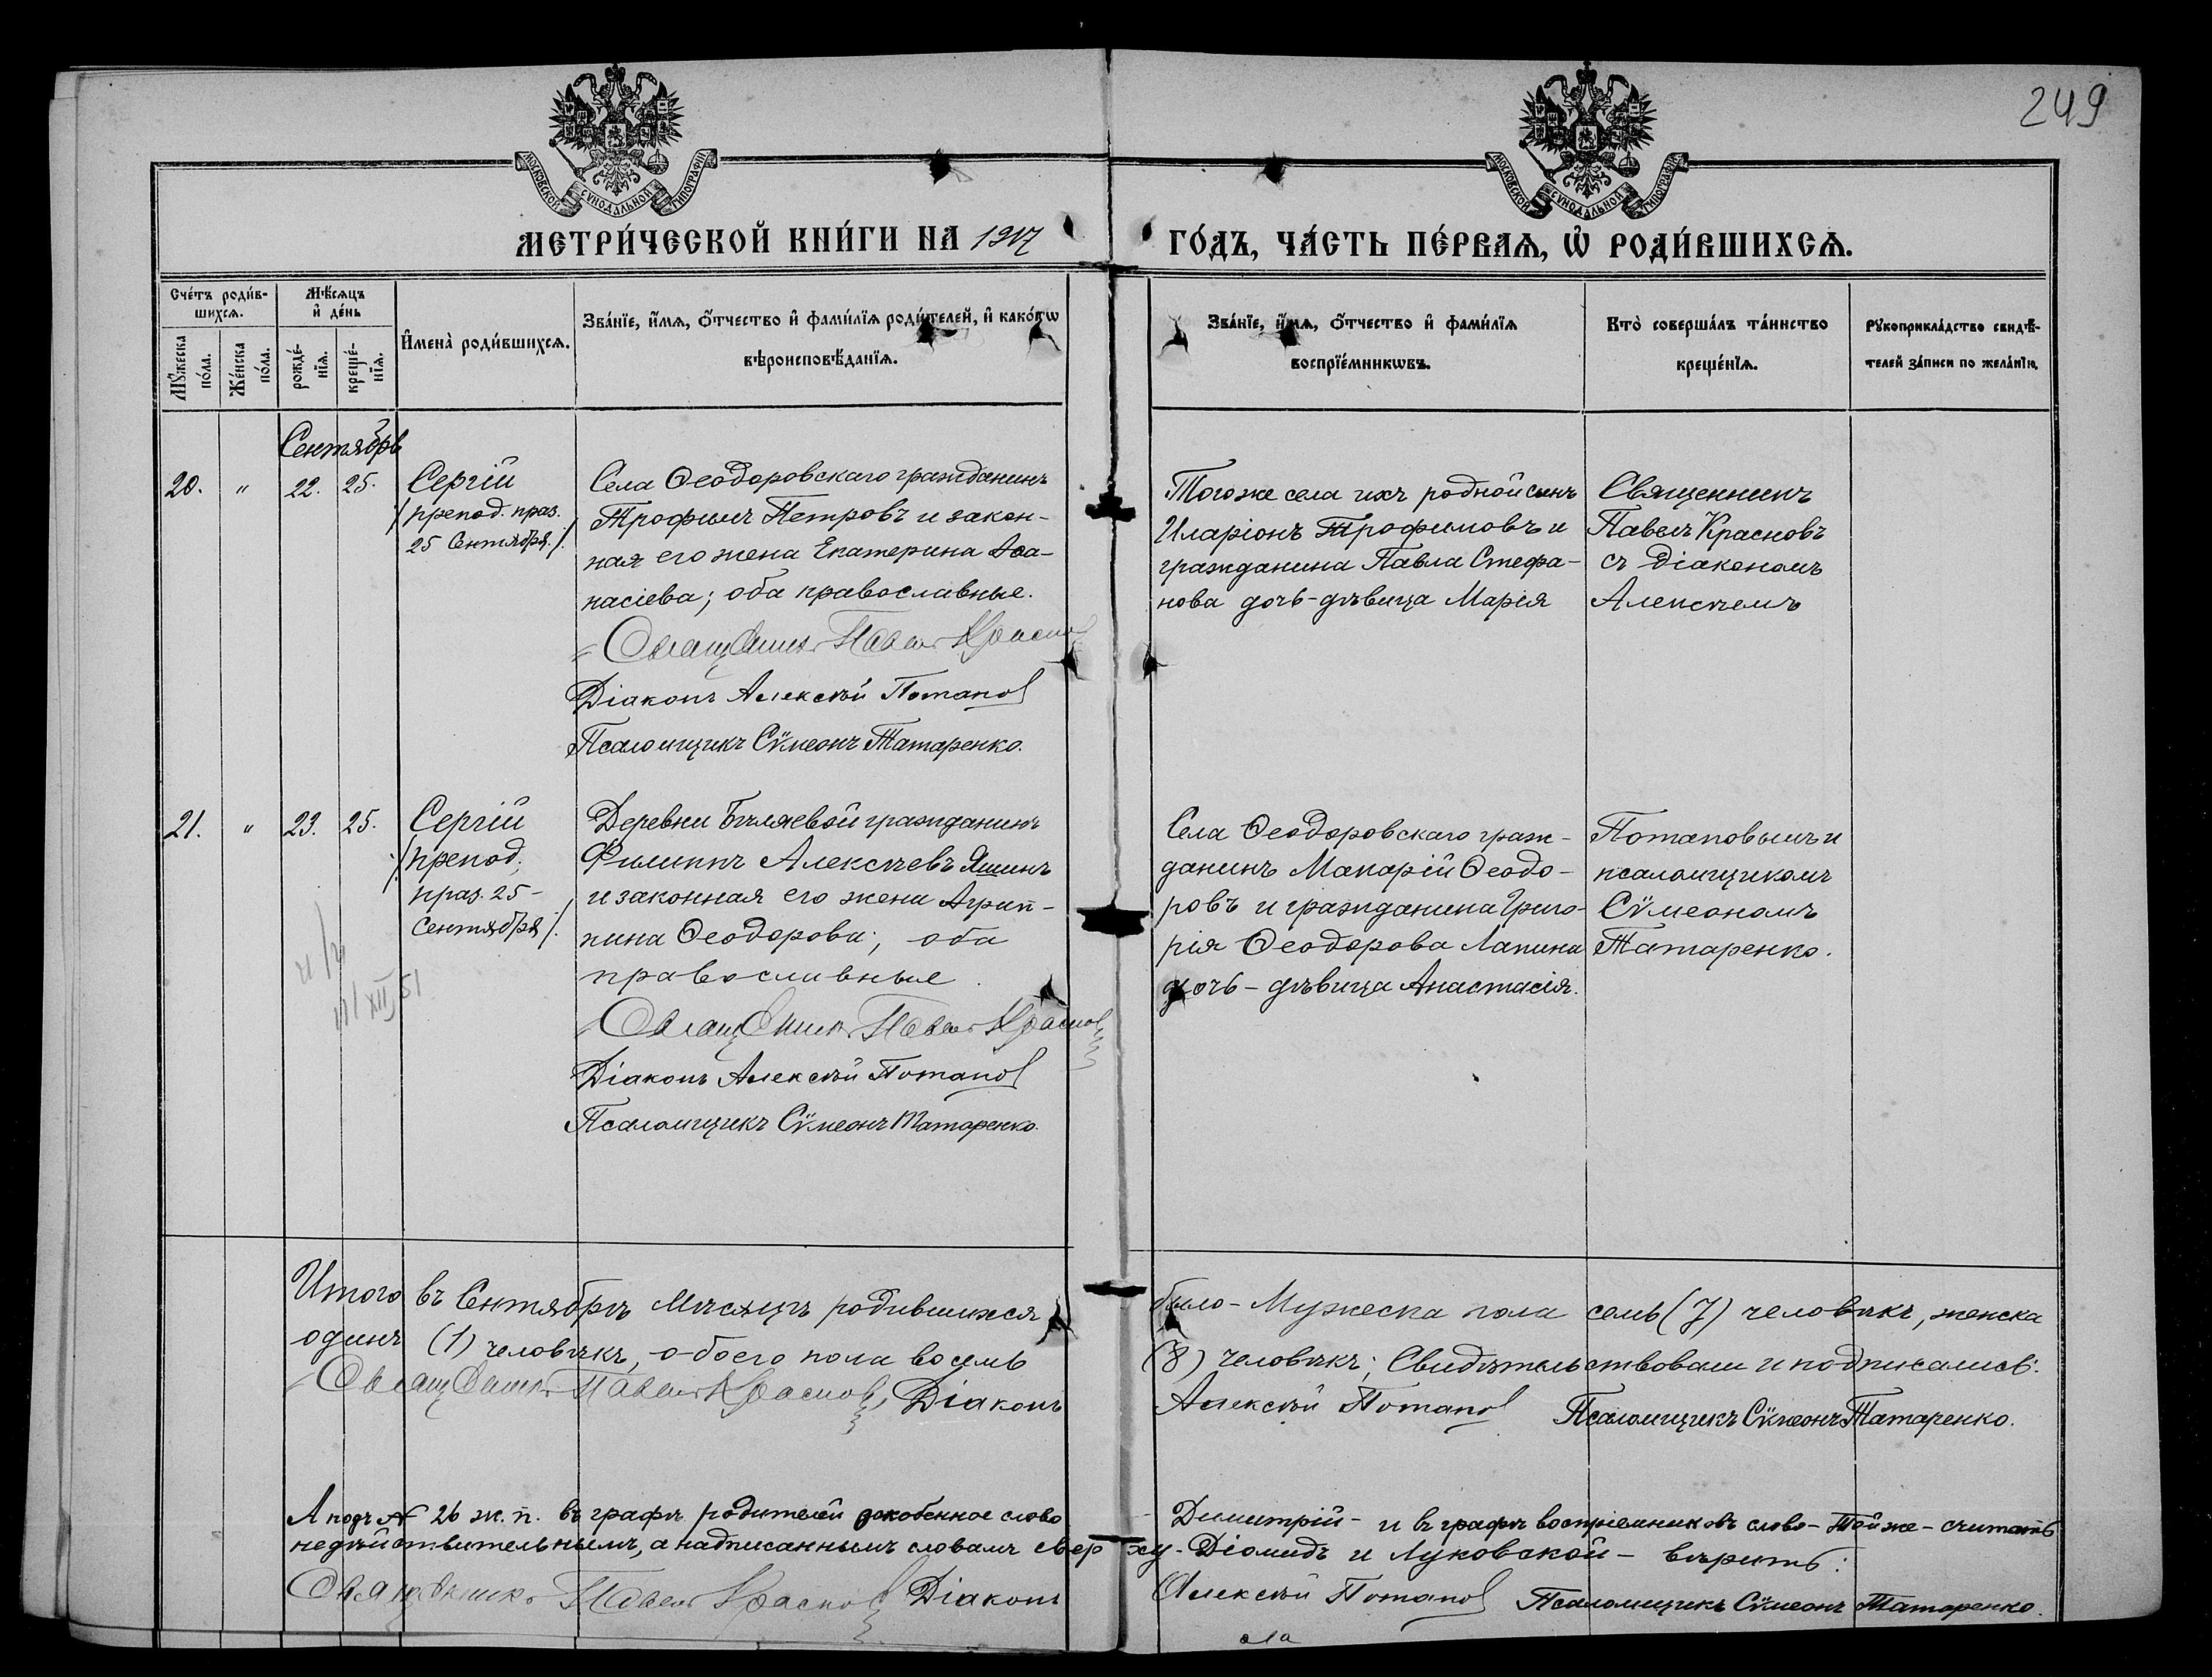 249
МОСКОВСКОЙ СѴНОДАЛЬНОЙ ТИПОГРАФІИ
МОСКОВСКОЙ СѴНОДАЛЬНОЙ ТИПОГРАФІИ
МЕТРИ́ЧЕСКОЙ КНИ́ГИ НА 1917 ГО́ДЪ, ЧА́СТЬ ПЕ́РВАѦ, Ѽ РОДИ́ВШИХСѦ.
Сче́тъ роди́в-
шихсѧ.
Мꙋ́жеска
по́ла.
Же́нска
по́ла.
Мѣ́сѧцъ
и҆ де́нь
рожде́-
нїѧ.
креще́-
нїѧ.
И҆мена̀ роди́вшихсѧ.
Зва́нїе, и҆́мѧ, ѻ҆́тчество и҆ фами́лїѧ роди́телей, и҆ како́гѡ
вѣроисповѣ́данїѧ.
Зва́нїе, и҆́мѧ, ѻ҆́тчество и҆ фами́лїѧ
воспрїе́мникѡвъ.
Кто̀ соверша́лъ та́инство
креще́нїѧ.
Рꙋкоприкла́дство свидѣ́-
телей за́писи по жела́нїю.
Сентябрь
20. " 22. 25.
Сергій
/препод. праз.
25 Сентября./.
Села Ѳеодоровскаго гражданинъ
Трофимъ Петровъ и закон-
ная его жена Екатерина Аѳа-
насіева; оба православные.
Священникъ Павелъ Краснов
Діаконъ Алексѣй Потапов
Псаломщикъ Сѷмеонъ Татаренко.
Тогоже села ихъ родной сынъ
Иларіонъ Трофимовъ и
гражданина Павла Стефа-
нова дочь-дѣвица Марія
Священникъ
Павелъ Красновъ
съ діакономъ
Алексѣемъ
21. " 23. 25.
Сергій
/препод.
праз. 25-
Сентября/.
11/XII 51
Деревни Бѣляевой гражданинъ
Филиппъ Алексѣевъ Яшинъ
и законная его жена Агрип-
пина Ѳеодорова; оба
православные.
Священникъ Павелъ Краснов
Діаконъ Алексѣй Потапов
Псаломщикъ Сѷмеонъ Татаренко.
Села Ѳеодоровскаго граж-
данинъ Макарій Ѳеодо-
ровъ и гражданина Григо-
рія Ѳеодорова Лапина
дочь-дѣвица Анастасія.
Потаповымъ и
псаломщикомъ
Сѷмеономъ
Татаренко.
Итого въ Сентябрѣ Мѣсяцѣ родившихся было-Мужеска пола семь (7) человѣкъ, женска
одинъ (1) человѣкъ, обоего пола восемь (8) человѣкъ; Свидѣтельствовали и подписались:
Священникъ Павелъ Краснов, Діаконъ Алексѣй Потапов Псаломщикъ Сѷмеонъ Татаренко.
А подъ № 26 ж. п. въ графѣ родителей оскобленное слово - Димитрій - и въ графѣ воспріемниковъ слово - Той же - считать
недѣйствительнымъ, а надписаннымъ словамъ сверху - Діомидъ и Луковской - вѣрить:
Священникъ Павелъ Краснов Діаконъ Алексѣй Потапов Псаломщикъ Сѷмеонъ Татаренко.